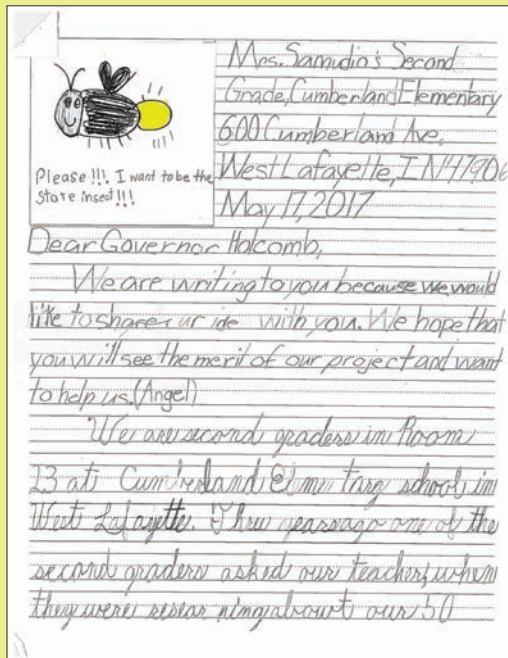 Mrs. Samudio's Second
Grade, Cumberland Elementary
600 Cumberland Ave.
West Lafayette, IN 47906
May 17, 2017
Please!!! I want to be the
State insect!!!
Dear Governor Holcomb,
We are writing to you because we would
like to share ur ide with you. We hope that
you will see the merit of our project and want
to help us. (Angel)
We are second graders in Room
23 at Cumberland El me tary school in
West Lafayette. Three years ago one of the
second graders asked our teacher, when
they were resear ning about our 50